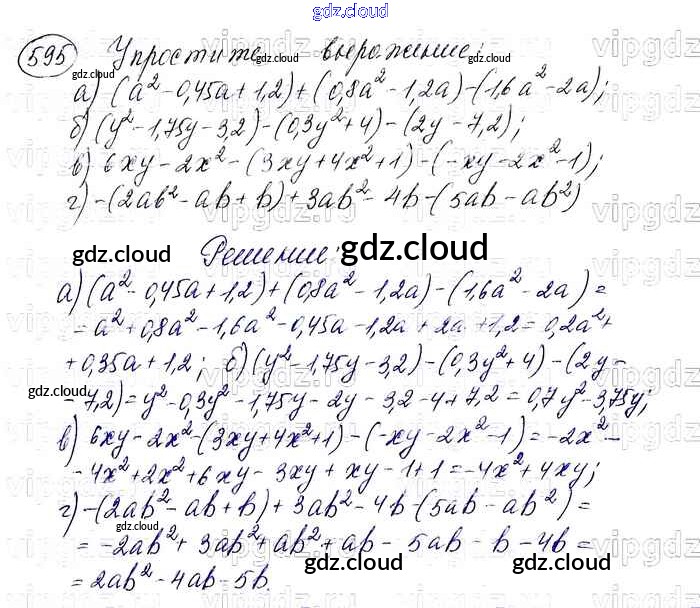 gdz.cloud
595 Упростите выражение:
а) (a² - 0,45a + 1,2) + (0,8a² - 1,2a) - (1,6a² - 2a);
б) (y² - 1,75y - 3,2) - (0,3y² + 4) - (2y - 7,2);
в) 6xy - 2x² - (3xy + 4x² + 1) - (-xy - 2x² - 1);
г) -(2ab² - ab + b) + 3ab² - 4b - (5ab - ab²)
Решение:
а) (a² - 0,45a + 1,2) + (0,8a² - 1,2a) - (1,6a² - 2a) =
= a² + 0,8a² - 1,6a² - 0,45a - 1,2a + 2a + 1,2 = 0,2a² +
+ 0,35a + 1,2; б) (y² - 1,75y - 3,2) - (0,3y² + 4) - (2y -
- 7,2) = y² - 0,3y² - 1,75y - 2y - 3,2 - 4 + 7,2 = 0,7y² - 3,75y;
в) 6xy - 2x² - (3xy + 4x² + 1) - (-xy - 2x² - 1) = -2x² -
- 4x² + 2x² + 6xy - 3xy + xy - 1 + 1 = -4x² + 4xy;
г) -(2ab² - ab + b) + 3ab² - 4b - (5ab - ab²) =
= -2ab² + 3ab² + ab² + ab - 5ab - b - 4b =
= 2ab² - 4ab - 5b.